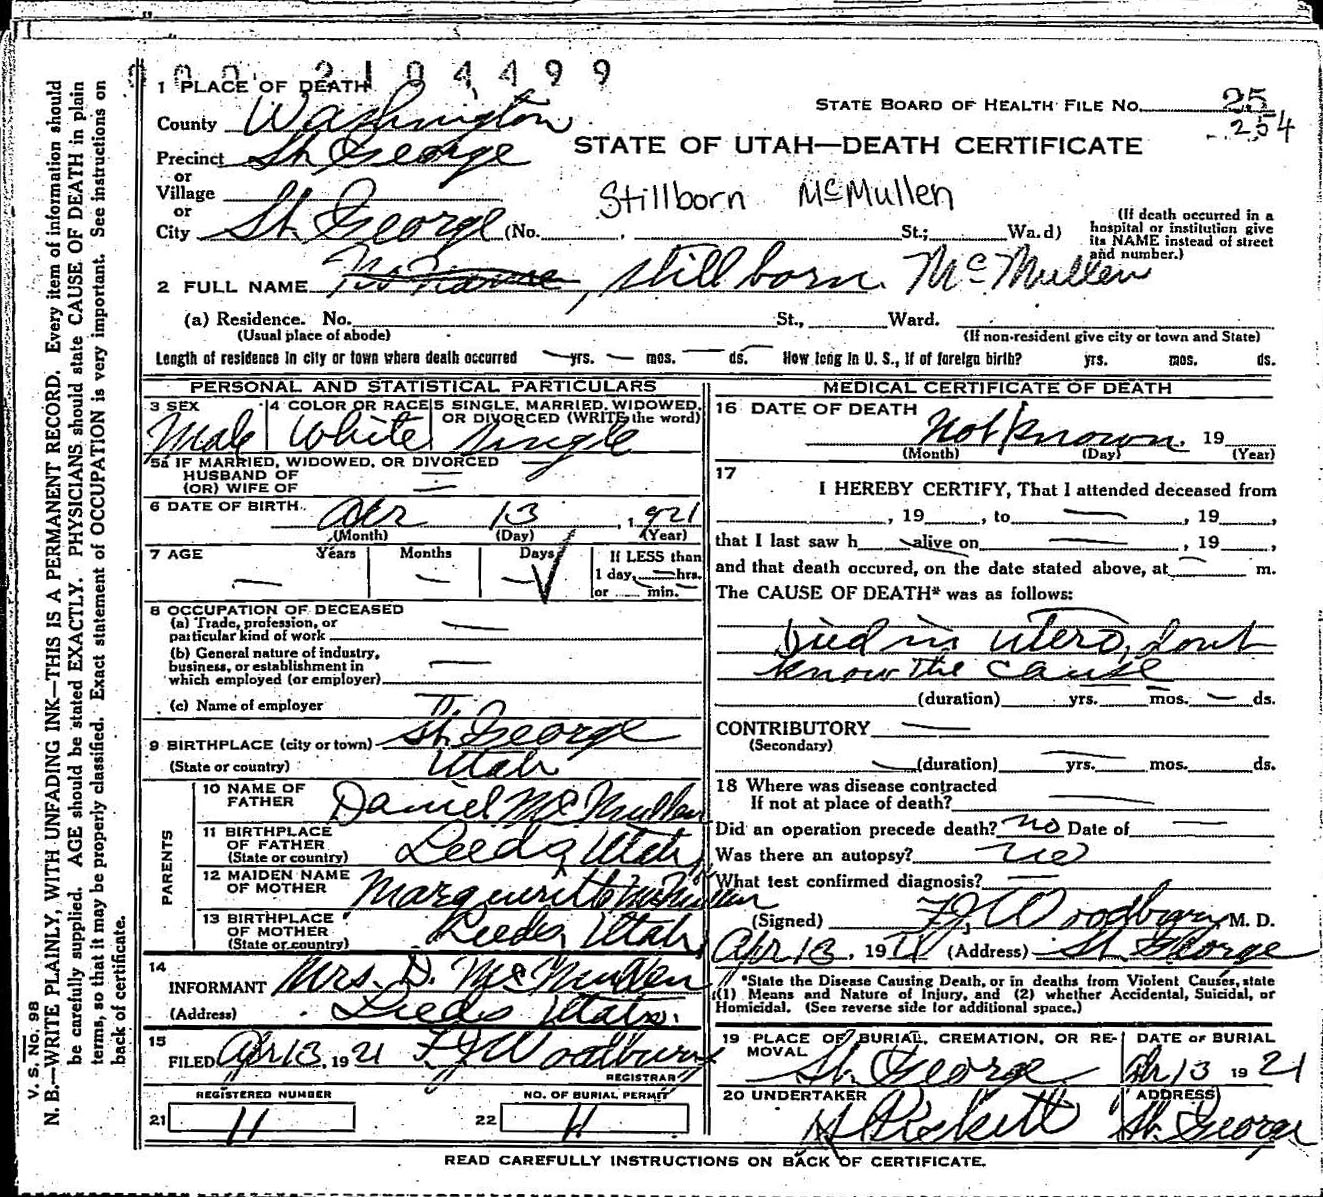 000 2104499
1 PLACE OF DEATH
STATE BOARD OF HEALTH FILE NO. 25
254
County Washington
Precinct St. George
STATE OF UTAH—DEATH CERTIFICATE
or
Village
Stillborn McMullen
or
City St. George (No. St.; Wa.d)
(If death occurred in a
hospital or institution give
its NAME instead of street
and number.)
2 FULL NAME No Name, stillborn. McMullen
(a) Residence. No. St., Ward.
(Usual place of abode) (If non-resident give city or town and State)
Length of residence in city or town where death occurred — yrs. — mos. — ds. How long in U. S., if of foreign birth? yrs. mos. ds.
PERSONAL AND STATISTICAL PARTICULARS
3 SEX 4 COLOR OR RACE 5 SINGLE, MARRIED, WIDOWED,
OR DIVORCED (WRITE the word)
Male White Single
5a IF MARRIED, WIDOWED, OR DIVORCED
HUSBAND OF —
(OR) WIFE OF —
6 DATE OF BIRTH Apr 13, 1921
(Month) (Day) (Year)
7 AGE Years Months Days If LESS than
— — — 1 day, — hrs.
or — min.
8 OCCUPATION OF DECEASED
(a) Trade, profession, or
particular kind of work —
(b) General nature of industry,
business, or establishment in
which employed (or employer) —
(c) Name of employer —
9 BIRTHPLACE (city or town) St. George
(State or country) Utah
PARENTS
10 NAME OF
FATHER Daniel McMullen
11 BIRTHPLACE
OF FATHER
(State or country) Leeds, Utah
12 MAIDEN NAME
OF MOTHER Marguerite McMullen
13 BIRTHPLACE
OF MOTHER
(State or country) Leeds, Utah
14
INFORMANT Mrs. D. McMullen
(Address) Leeds Utah.
15
FILED Apr 13, 1921 F J Woodbury
REGISTRAR
REGISTERED NUMBER NO. OF BURIAL PERMIT
21 11 22 11
MEDICAL CERTIFICATE OF DEATH
16 DATE OF DEATH
Not known. 19
(Month) (Day) (Year)
17
I HEREBY CERTIFY, That I attended deceased from
, 19 , to — , 19 ,
that I last saw h — alive on — , 19 ,
and that death occured, on the date stated above, at — m.
The CAUSE OF DEATH* was as follows:
Died in utero, dont
know the cause
(duration) — yrs. — mos. — ds.
CONTRIBUTORY —
(Secondary)
— (duration) — yrs. mos. ds.
18 Where was disease contracted
If not at place of death? —
Did an operation precede death? no Date of —
Was there an autopsy? no
What test confirmed diagnosis? —
(Signed) F J Woodbury M. D.
Apr 13, 1921 (Address) St. George
*State the Disease Causing Death, or in deaths from Violent Causes, state
(1) Means and Nature of Injury, and (2) whether Accidental, Suicidal, or
Homicidal. (See reverse side for additional space.)
19 PLACE OF BURIAL, CREMATION, OR RE-
MOVAL St. George
DATE OF BURIAL
Apr 13 1921
20 UNDERTAKER
Pickett
ADDRESS
St. George
READ CAREFULLY INSTRUCTIONS ON BACK OF CERTIFICATE.
V. S. No. 98
N. B.—WRITE PLAINLY, WITH UNFADING INK—THIS IS A PERMANENT RECORD. Every item of information should
be carefully supplied. AGE should be stated EXACTLY. PHYSICIANS should state CAUSE OF DEATH in plain
terms, so that it may be properly classified. Exact statement of OCCUPATION is very important. See instructions on
back of certificate.